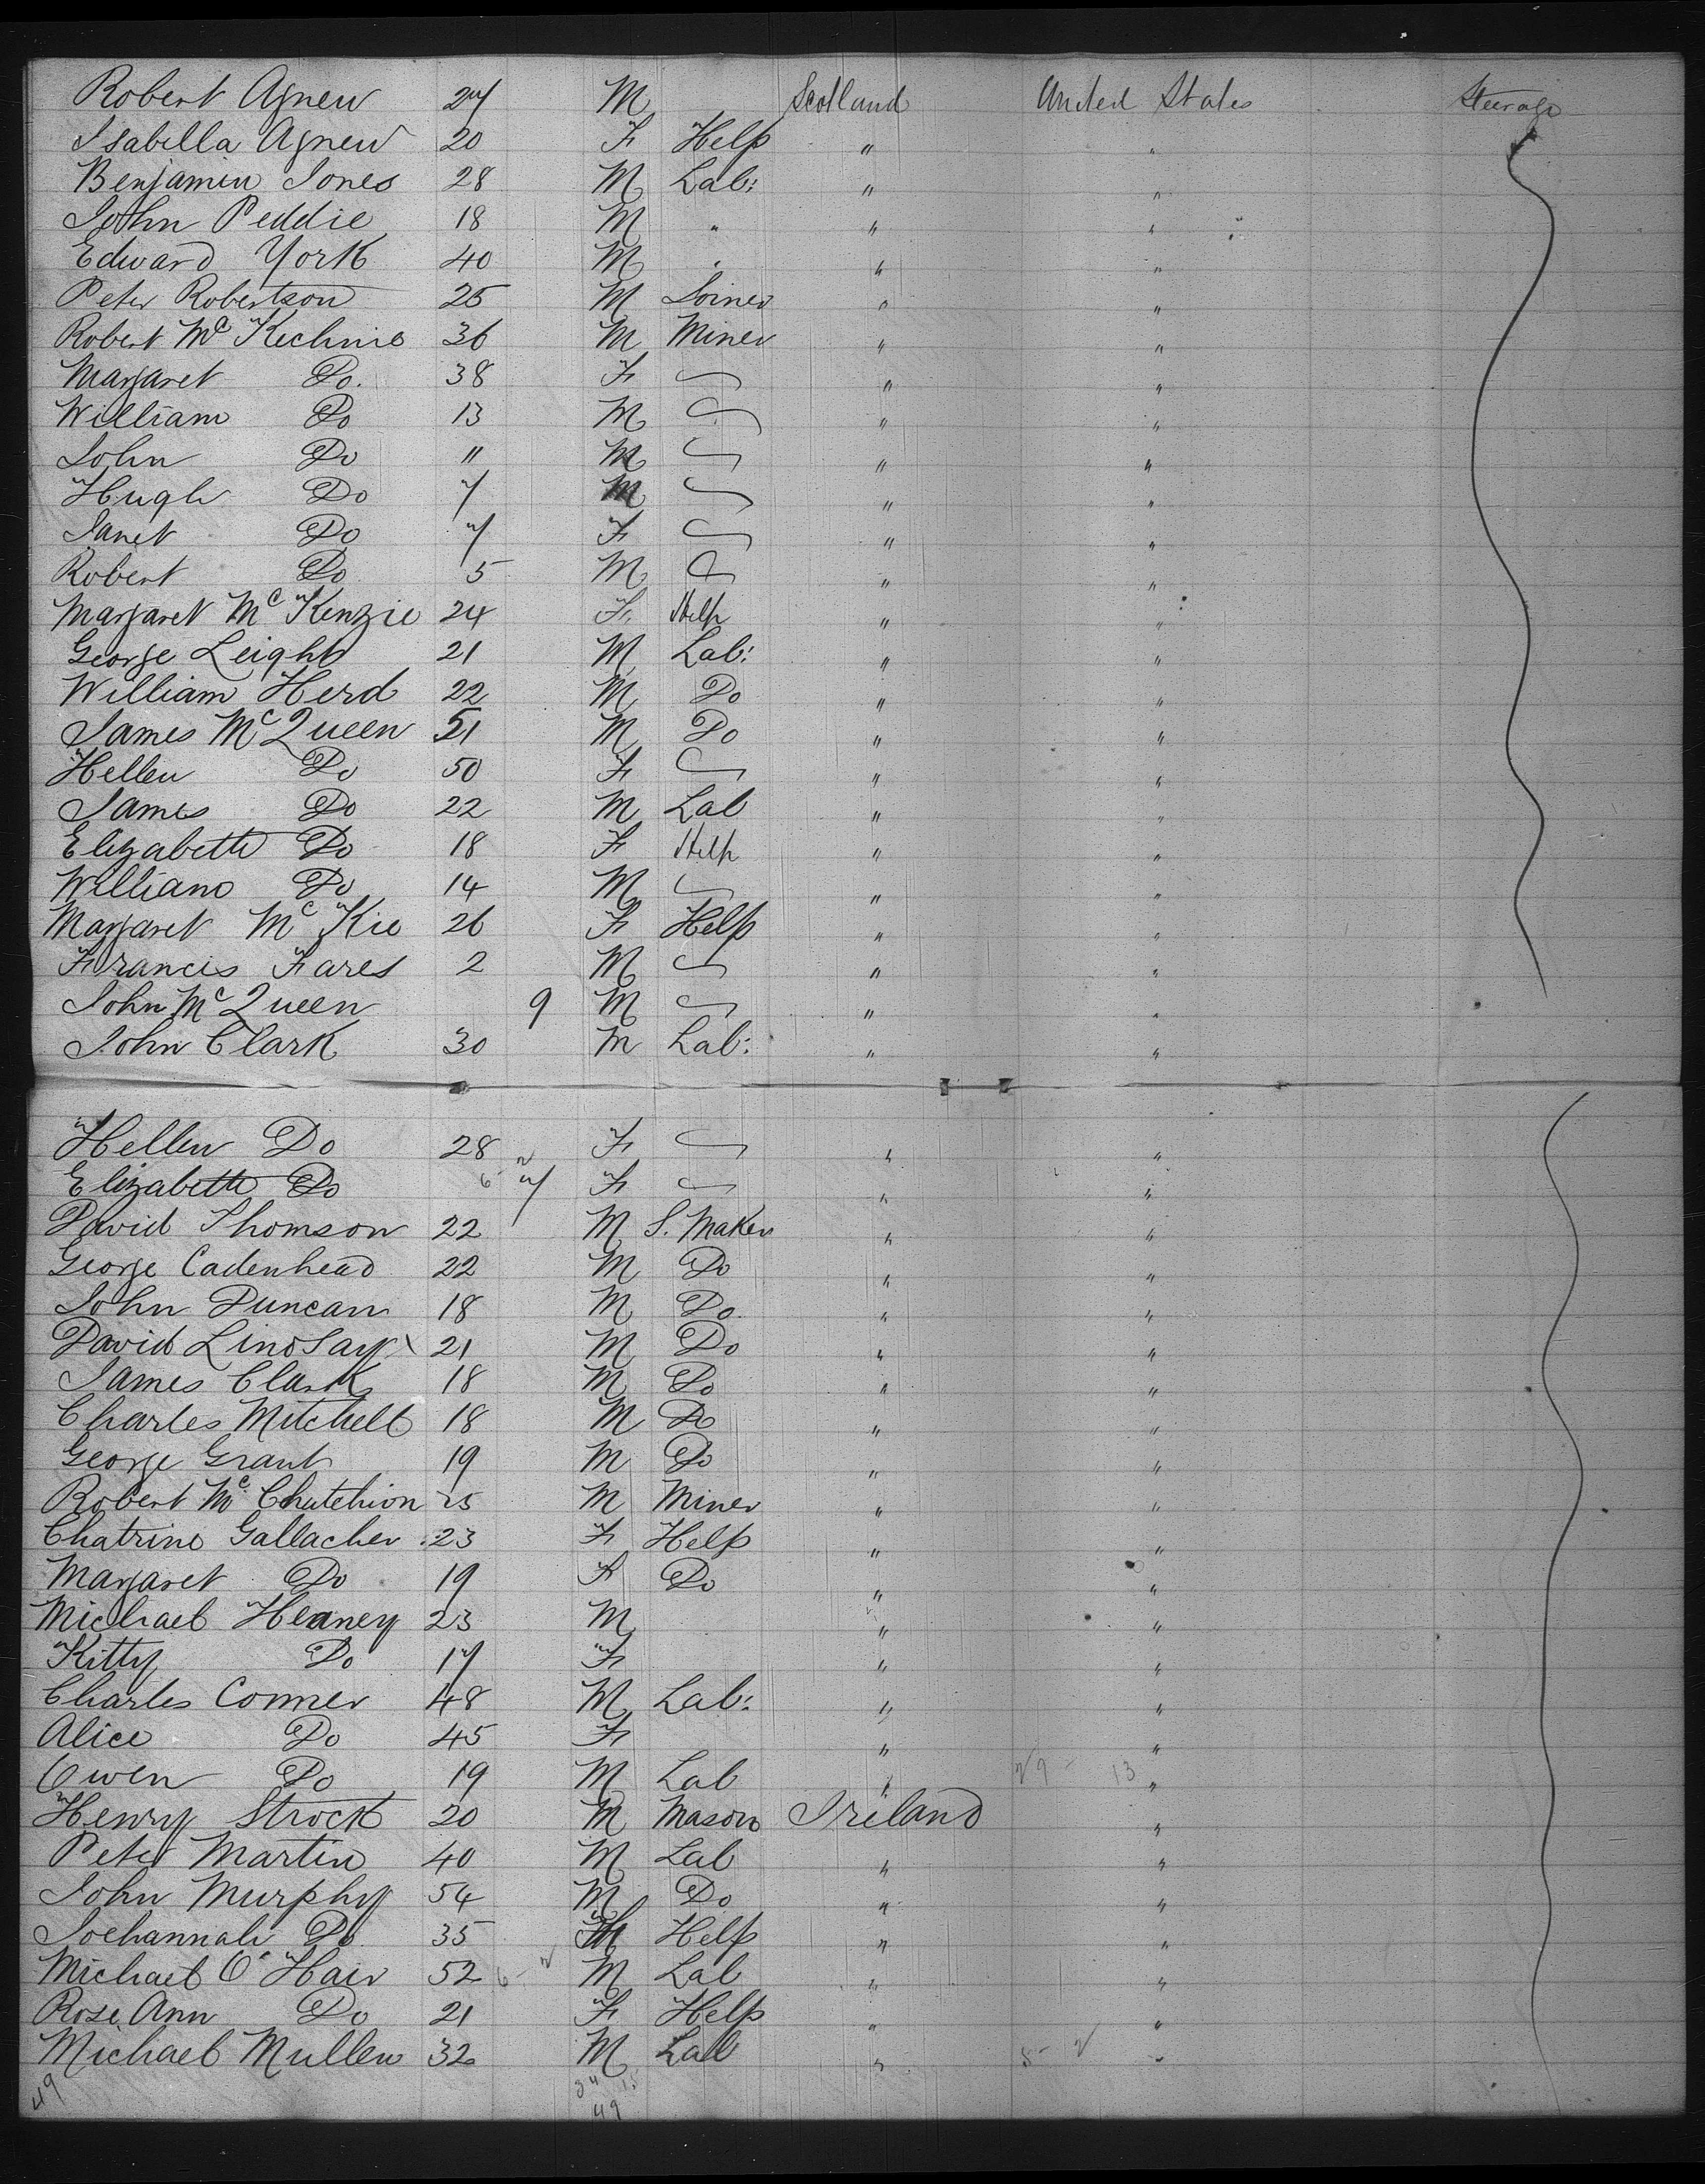 Robert Agnew 27 M Scotland United States Steerage
Isabella Agnew 20 F Help " "
Benjamin Jones 28 M Lab: " "
John Peddie 18 M " " "
Edward York 40 M " " "
Peter Robertson 25 M Joiner " "
Robert McKechnie 36 M Miner " "
Margaret Do. 38 F " "
William Do 13 M " "
John Do 11 M " "
Hugh Do 7 M " "
Janet Do 7 F " "
Robert Do 5 M " "
Margaret McKenzie 24 F Help " "
George Leight 21 M Lab: " "
William Herd 22 M Do " "
James McQueen 51 M Do " "
Hellen Do 50 F " "
James Do 22 M Lab " "
Elizabeth Do 18 F Help " "
William Do 14 M " "
Margaret McKie 26 F Help " "
Francis Fares 2 M " "
John McQueen 9 M " "
John Clark 30 M Lab: " "
Hellen Do 28 F " "
Elizabeth Do 7 F " "
David Thomson 22 M S. Maker " "
George Cadenhead 22 M Do " "
John Duncan 18 M Do " "
David Lindsay 21 M Do " "
James Clark 18 M Do " "
Charles Mitchell 18 M Do " "
George Grant 19 M Do " "
Robert McChutchion 25 M Miner " "
Chatrine Gallacher 23 F Help " "
Margaret Do 19 F Do " "
Michael Heaney 23 M " "
Kitty Do 17 F " "
Charles Conner 48 M Lab: " "
Alice Do 45 F " "
Owen Do 19 M Lab " "
Henry Strock 20 M Mason Ireland "
Peter Martin 40 M Lab " "
John Murphy 54 M Do " "
Joehannah Do 35 F Help " "
Michael O'Hair 52 M Lab " "
Rose Ann Do 21 F Help " "
Michael Mullen 32 M Lab " "
49 49